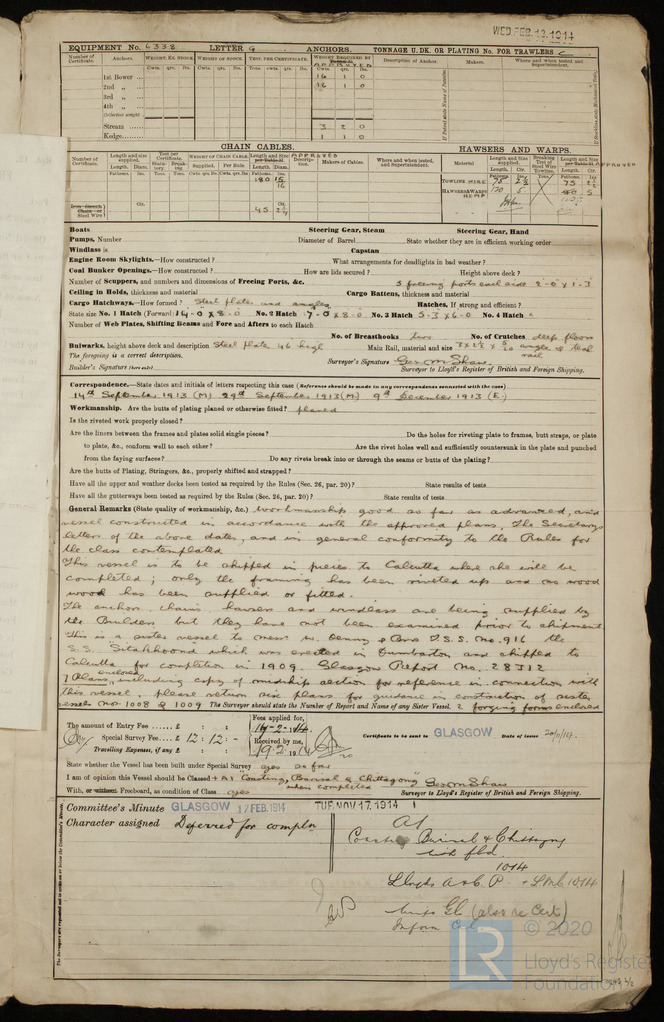 WED. FEB. 18. 1914
EQUIPMENT No. 6338 LETTER G ANCHORS. TONNAGE U.DK. OR PLATING No. FOR TRAWLERS
Number of Certificate. Anchors. WEIGHT, EX. STOCK. WEIGHT OF STOCK. TEST, PER CERTIFICATE. WEIGHT REQUIRED BY Description of Anchor. Makers. Where and when tested and Superintendent.
APPROVED
Cwts. qrs. lbs.
1st Bower 16 1 0
2nd „ 16 1 0
3rd „
4th „
Collective weight
Stream 3 2 0
Kedge 1 1 0
CHAIN CABLES. HAWSERS AND WARPS.
APPROVED
Number of Certificate. Length and size supplied. Test per Certificate. WEIGHT OF CHAIN CABLE. Length and size per Table 31. Description. Makers of Cables. Where and when tested, and Superintendent. Material Length and Size supplied. Breaking Test of Steel Wire Towline.
Supplied. Per Rule.
180 15/16
TOWLINE WIRE 75 2½ 75
HAWSERS & WARPS HEMP 120 5 5
Steel Wire 45 2¼
Boats Steering Gear, Steam Steering Gear, Hand
Pumps, Number Diameter of Barrel State whether they are in efficient working order
Windlass is Capstan
Engine Room Skylights.—How constructed? What arrangements for deadlights in bad weather?
Coal Bunker Openings.—How constructed? How are lids secured? Height above deck?
Number of Scuppers, and numbers and dimensions of Freeing Ports, &c. 5 freeing ports each side 2-0 x 1-3
Ceiling in Holds, thickness and material Cargo Battens, thickness and material
Cargo Hatchways.—How formed? Steel plate and angles Hatches, If strong and efficient?
State size No. 1 Hatch (Forward) 14-0 x 8-0 No. 2 Hatch 7-0 x 8-0 No. 3 Hatch 5-3 x 6-0 No. 4 Hatch
Number of Web Plates, Shifting Beams and Fore and Afters to each Hatch
No. of Breasthooks two No. of Crutches deep floors
Bulwarks, height above deck and description Steel plate 46 high Main Rail, material and size
The foregoing is a correct description.
Builder's Signature (here only) Surveyor's Signature Geo. M. Shaw
Surveyor to Lloyd's Register of British and Foreign Shipping.
Correspondence.—State dates and initials of letters respecting this case (Reference should be made in any correspondence connected with the case)
14th September 1913 (M) 29th September 1913 (M) 9th December 1913 (E)
Workmanship. Are the butts of plating planed or otherwise fitted? planed
Is the riveted work properly closed?
Are the liners between the frames and plates solid single pieces? Do the holes for riveting plate to frames, butt straps, or plate
to plate, &c., conform well to each other? Are the rivet holes well and sufficiently countersunk in the plate and punched
from the faying surfaces? Do any rivets break into or through the seams or butts of the plating?
Are the butts of Plating, Stringers, &c., properly shifted and strapped?
Have all the upper and weather decks been tested as required by the Rules (Sec. 26, par. 20)? State results of tests
Have all the gutterways been tested as required by the Rules (Sec. 26, par. 20)? State results of tests
General Remarks (State quality of workmanship, &c.) Workmanship good so far as advanced, and
vessel constructed in accordance with the approved plans, The Secretary's
letters of the above dates, and in general conformity to the Rules for
the class contemplated.
This vessel is to be shipped in pieces to Calcutta where she will be
completed; only the framing has been riveted up and no wood
work has been supplied or fitted.
The anchors, chains, hawsers and windlass are being supplied by
the Builders but they have not been examined prior to shipment
This is a sister vessel to Messrs W. Denny & Bros T.S.S. No. 916 the
S.S. Sitakhoond which was erected in Dumbarton and shipped to
Calcutta for completion in 1909. Glasgow Report No. 28312
7 Plans enclosed, including copy of midship section for reference in connection with
this vessel. please return six plans for guidance in construction of sister
vessels nos 1008 & 1009 The Surveyor should state the Number of Report and Name of any Sister Vessel. 2 forging forms enclosed
The amount of Entry Fee £ : :
Special Survey Fee £ 12 : 12 : -
Travelling Expenses, if any £ : :
Fees applied for, 14-2-14
Received by me, 19.2.1914
Certificate to be sent to GLASGOW Date of issue 20/11/14.
State whether the Vessel has been built under Special Survey yes so far
I am of opinion this Vessel should be Classed + A1 "Coasting, Burisal & Chittagong" Geo. M. Shaw
With, or without Freeboard, as condition of Class yes when completed Surveyor to Lloyd's Register of British and Foreign Shipping.
Committee's Minute GLASGOW 17 FEB. 1914 TUE. NOV. 17. 1914
Character assigned Deferred for compln
A1
Coasting Burisal & Chittagong
with fbd
10.14
Lloyds A & C. P. + LMC 10.14
(also re Cert)
LR © 2020
Lloyd's Register
Foundation